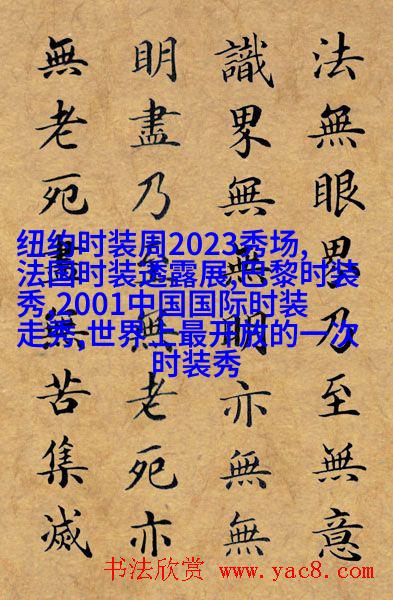 法無眼界乃至無意
識界無無明亦無無
明盡乃至無老死亦
無老死盡無苦集滅
纽约时装周2023秀场,
法国时装透露展,巴黎时装
秀,2001中国国际时装
走秀,世界上最开放的一次
时装秀
书法欣赏 www.yac8.com